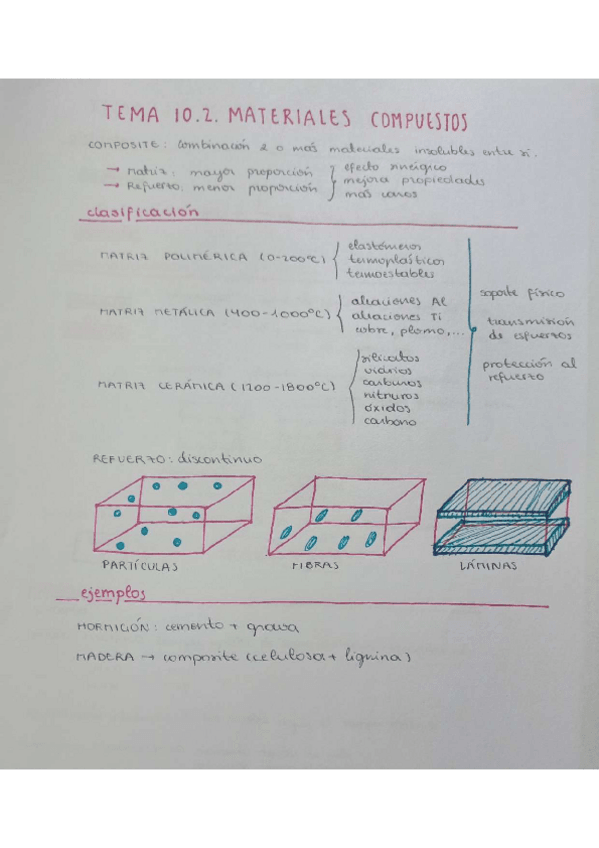 TEMA 10.2. MATERIALES COMPUESTOS
COMPOSITE: Combinación 2 o más materiales insolubles entre sí.
→ Matriz: mayor proporción
→ Refuerzo: menor proporción
efecto sinérgico
mejora propiedades
más caros
clasificación
MATRIZ POLIMÉRICA (0-200ºC)
elastómeros
termoplásticos
termoestables
MATRIZ METÁLICA (400-1000ºC)
aleaciones Al
aleaciones Ti
cobre, plomo,...
MATRIZ CERÁMICA (1200-1800ºC)
silicatos
vidrios
carburos
nitruros
óxidos
carbono
soporte físico
transmisión
de esfuerzos
protección al
refuerzo
REFUERZO: discontinuo
PARTÍCULAS
FIBRAS
LÁMINAS
ejemplos
HORMIGÓN: cemento + grava
MADERA → composite (celulosa + lignina)